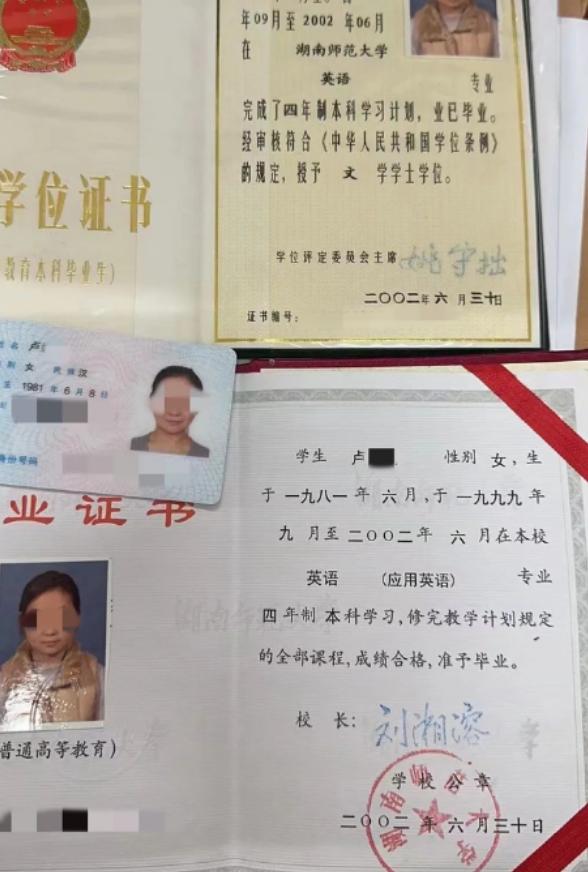 年09月至 2002 年06月
在 湖南师范大学
英语 专业
完成了四年制本科学习计划，业已毕业。
经审核符合《中华人民共和国学位条例》
的规定，授予 文 学学士学位。
学位评定委员会主席
二〇〇二年 六 月 三十日
证书编号：
学位证书
教育本科毕业生）
姓名 卢
别 女 民族 汉
1981 年 6 月 8 日
身份号码
业证书
普通高等教育）
学生 卢 性别 女，生
于 一九八一 年 六 月，于 一九九九 年
九 月至 二〇〇二 年 六 月在本校
英语 （应用英语） 专业
四 年制 本科学习，修完教学计划规定
的全部课程，成绩合格，准予毕业。
校 长： 刘湘溶
学校公章
二〇〇二 年 六 月 三十 日